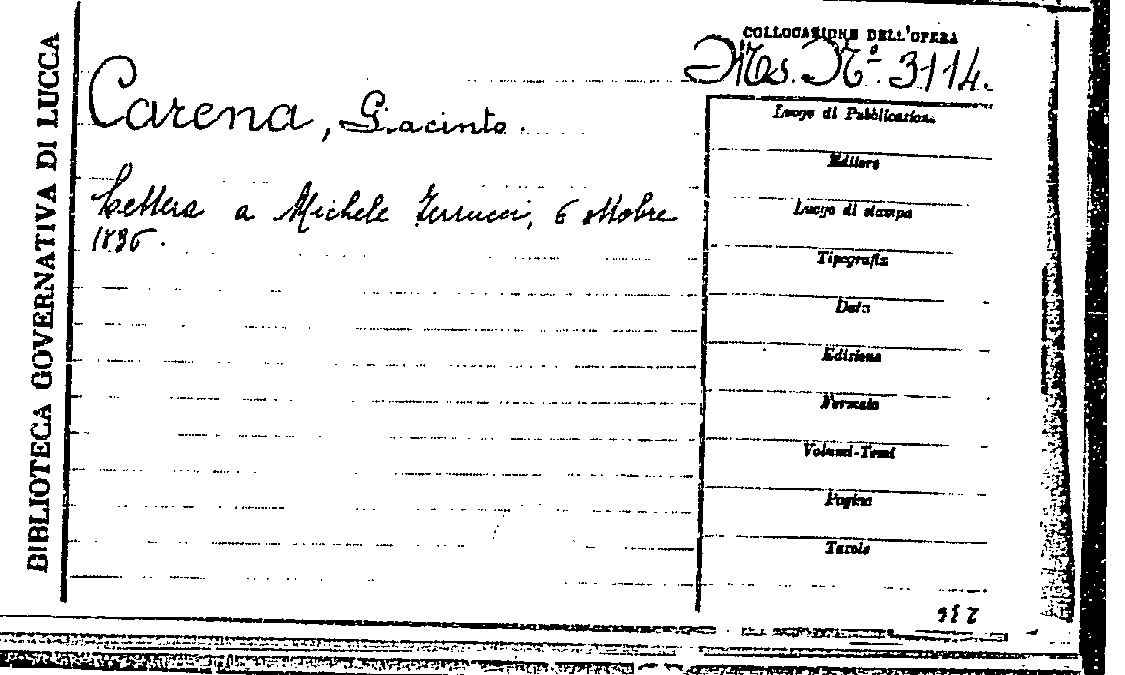 BIBLIOTECA GOVERNATIVA DI LUCCA
COLLOCAZIONE DELL'OPERA
Ms. N.º 3114.
Carena, Giacinto.
Lettera a Michele Ferrucci, 6 ottobre
1836.
Luogo di Pubblicazione
Editore
Luogo di stampa
Tipografia
Data
Edizione
Formato
Volumi-Tomi
Pagine
Tavole